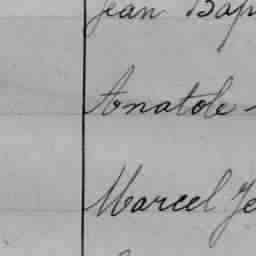 Jean Bap
Anatole
Marcel Je